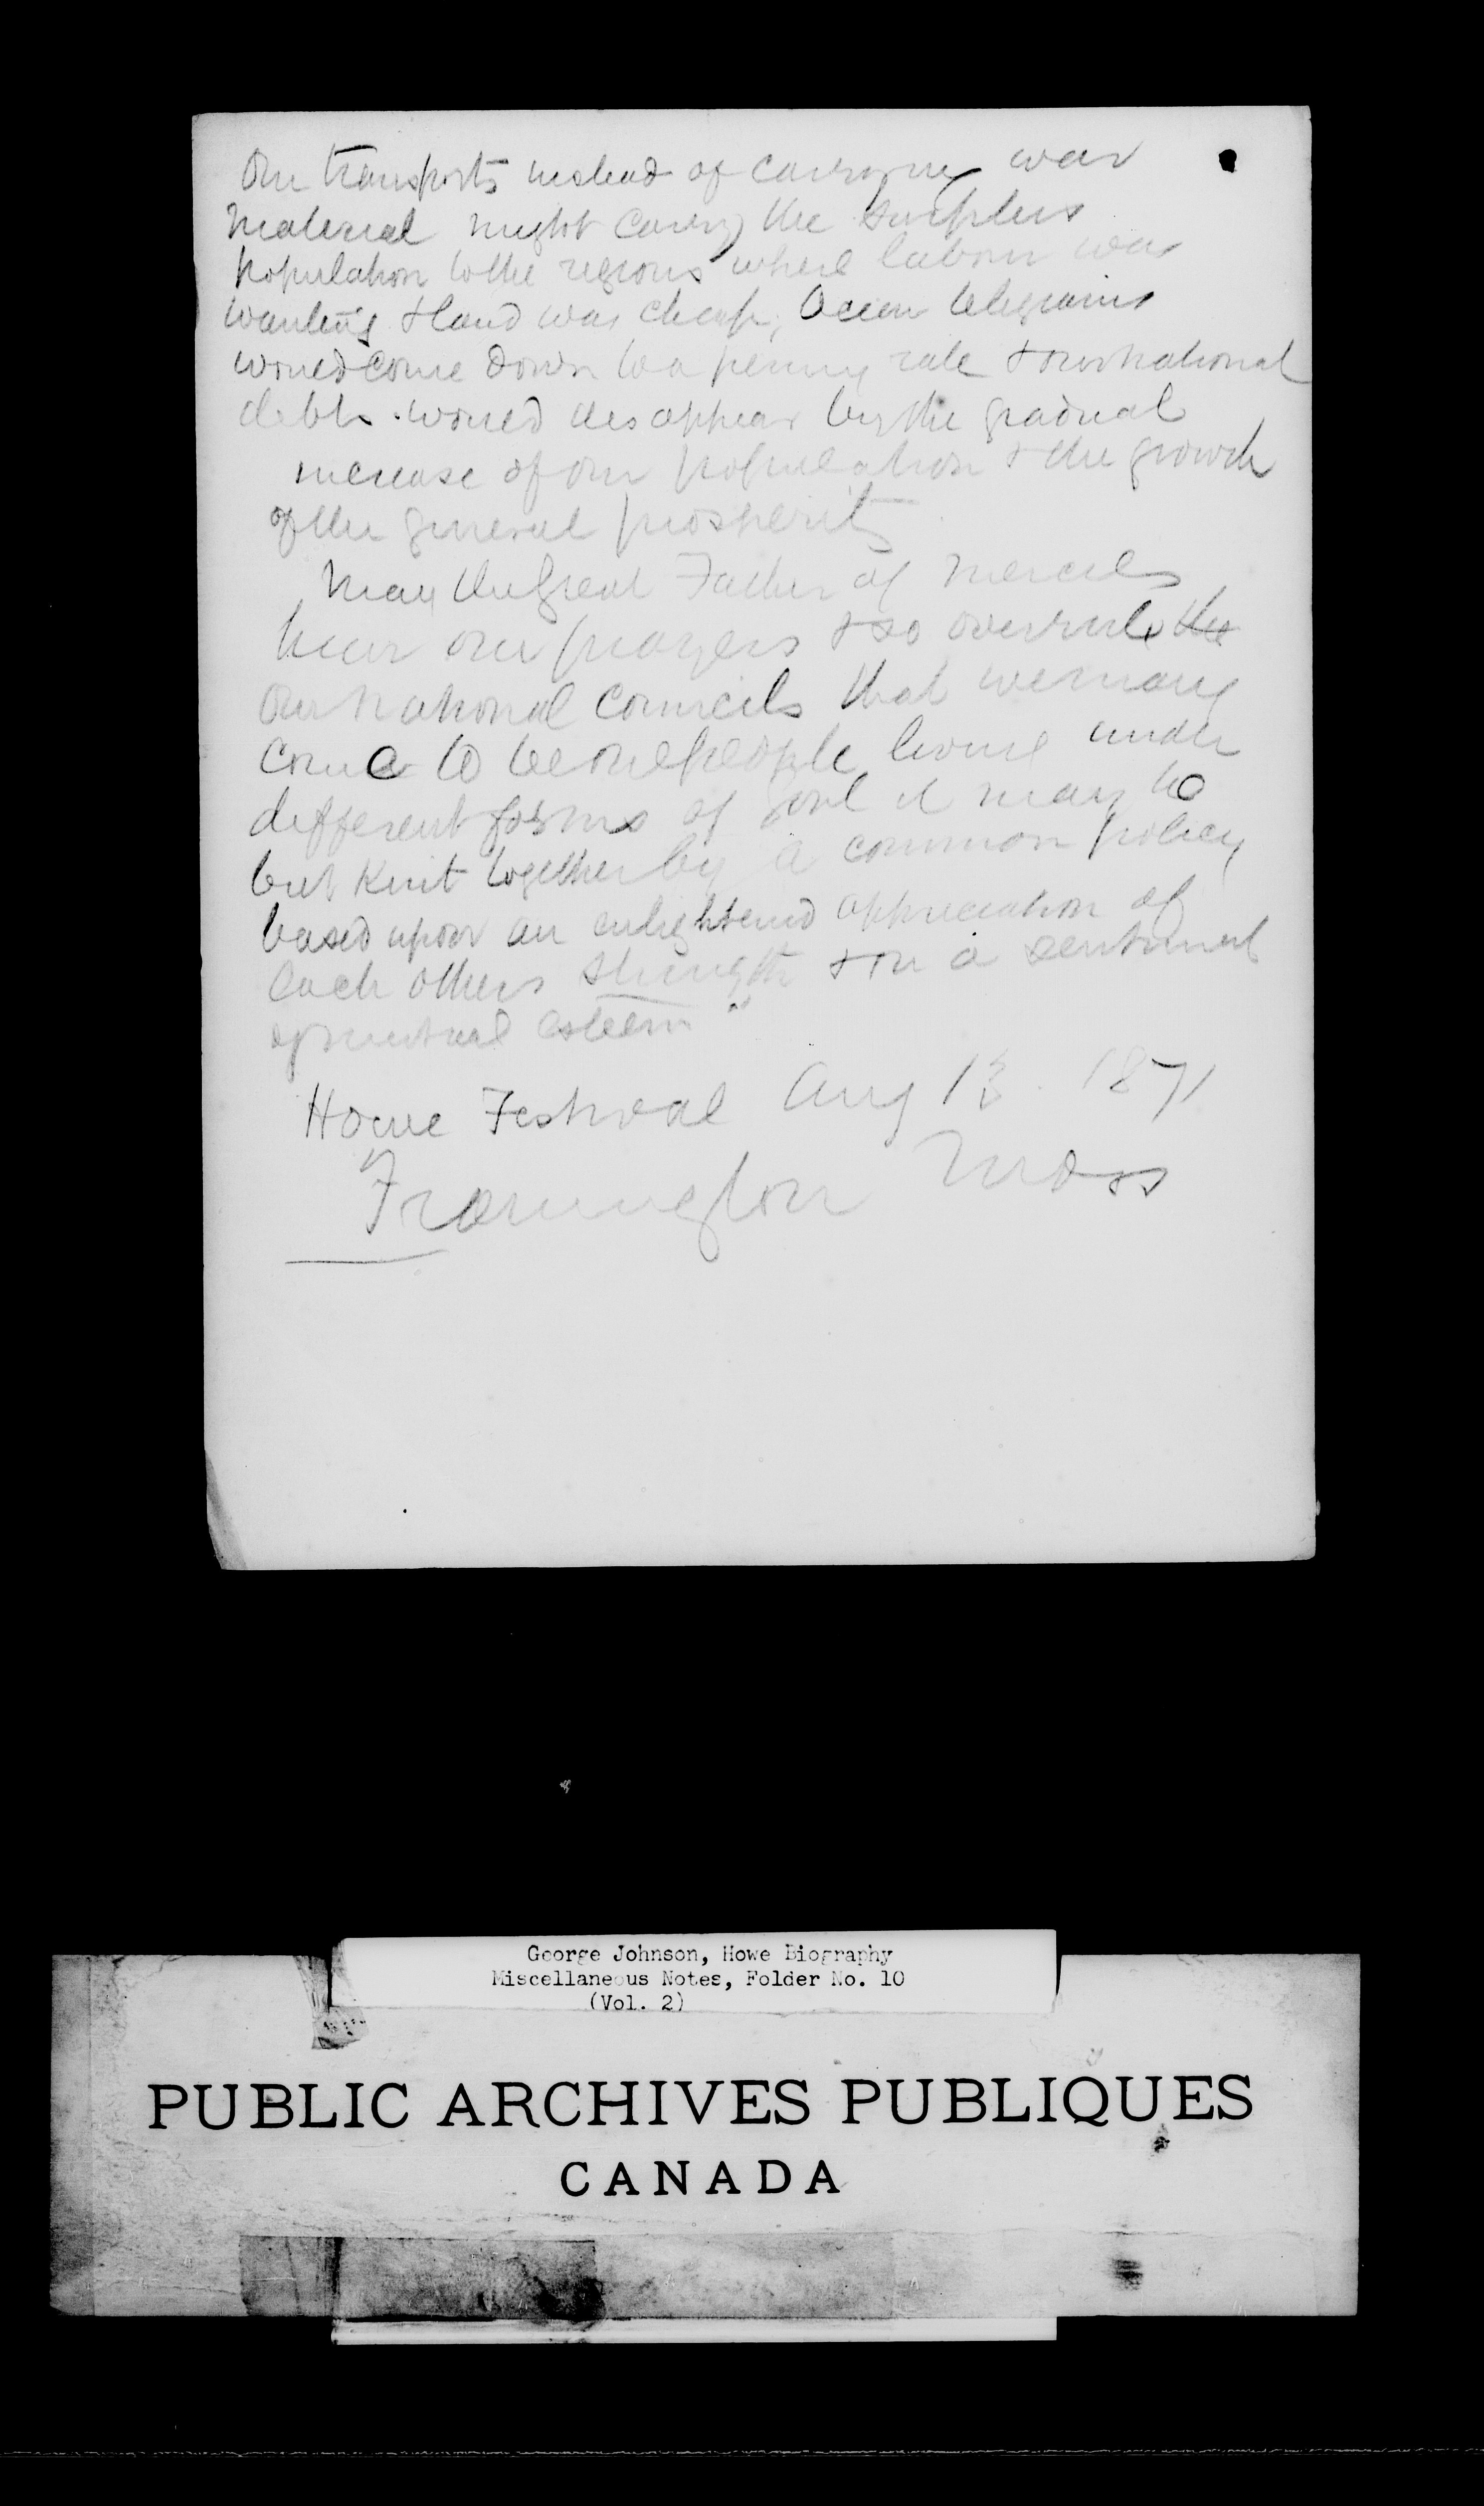 Our transports instead of carrying war
material might carry the surplus
population to the regions where labour was
wanting & land was cheap, Ocean telegrams
would come down to a penny rate & our national
debts would disappear by the gradual
increase of our population & the growth
of the general prosperity
May the Great Father of mercies
hear our prayers & so overrule the
our national councils that we may
come to be one people living under
different forms of Govt it may be
but knit together by a common policy
based upon an enlightened appreciation of
each others strength & on a sentiment
of mutual esteem"
Howe Festival Aug 13. 1871
Framington Mass
George Johnson, Howe Biography
Miscellaneous Notes, Folder No. 10
(Vol. 2)
PUBLIC ARCHIVES PUBLIQUES
CANADA